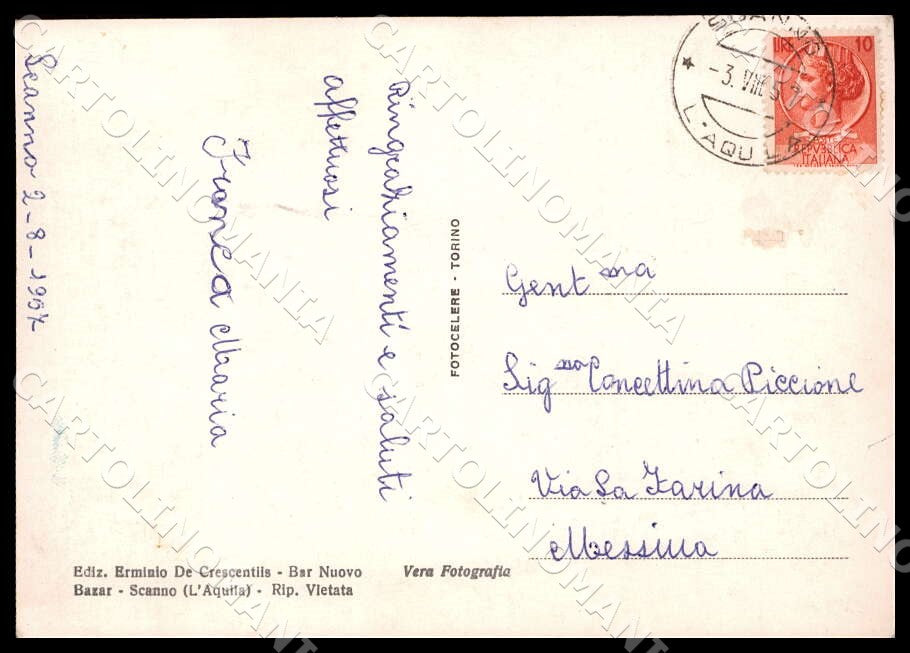 Scanno 2-8-1957
Ringraziamenti e saluti
affettuosi
Franca Maria
FOTOCELERE - TORINO
SCANNO
-3. VIII 57
L'AQUILA
LIRE 10
REPVBBLICA
ITALIANA
Gent ma
Sig na Concettina Piccione
Via La Farina
Messina
Ediz. Erminio De Crescentiis - Bar Nuovo
Bazar - Scanno (L'Aquila) - Rip. Vietata
Vera Fotografia
CARTOLINOMANIA